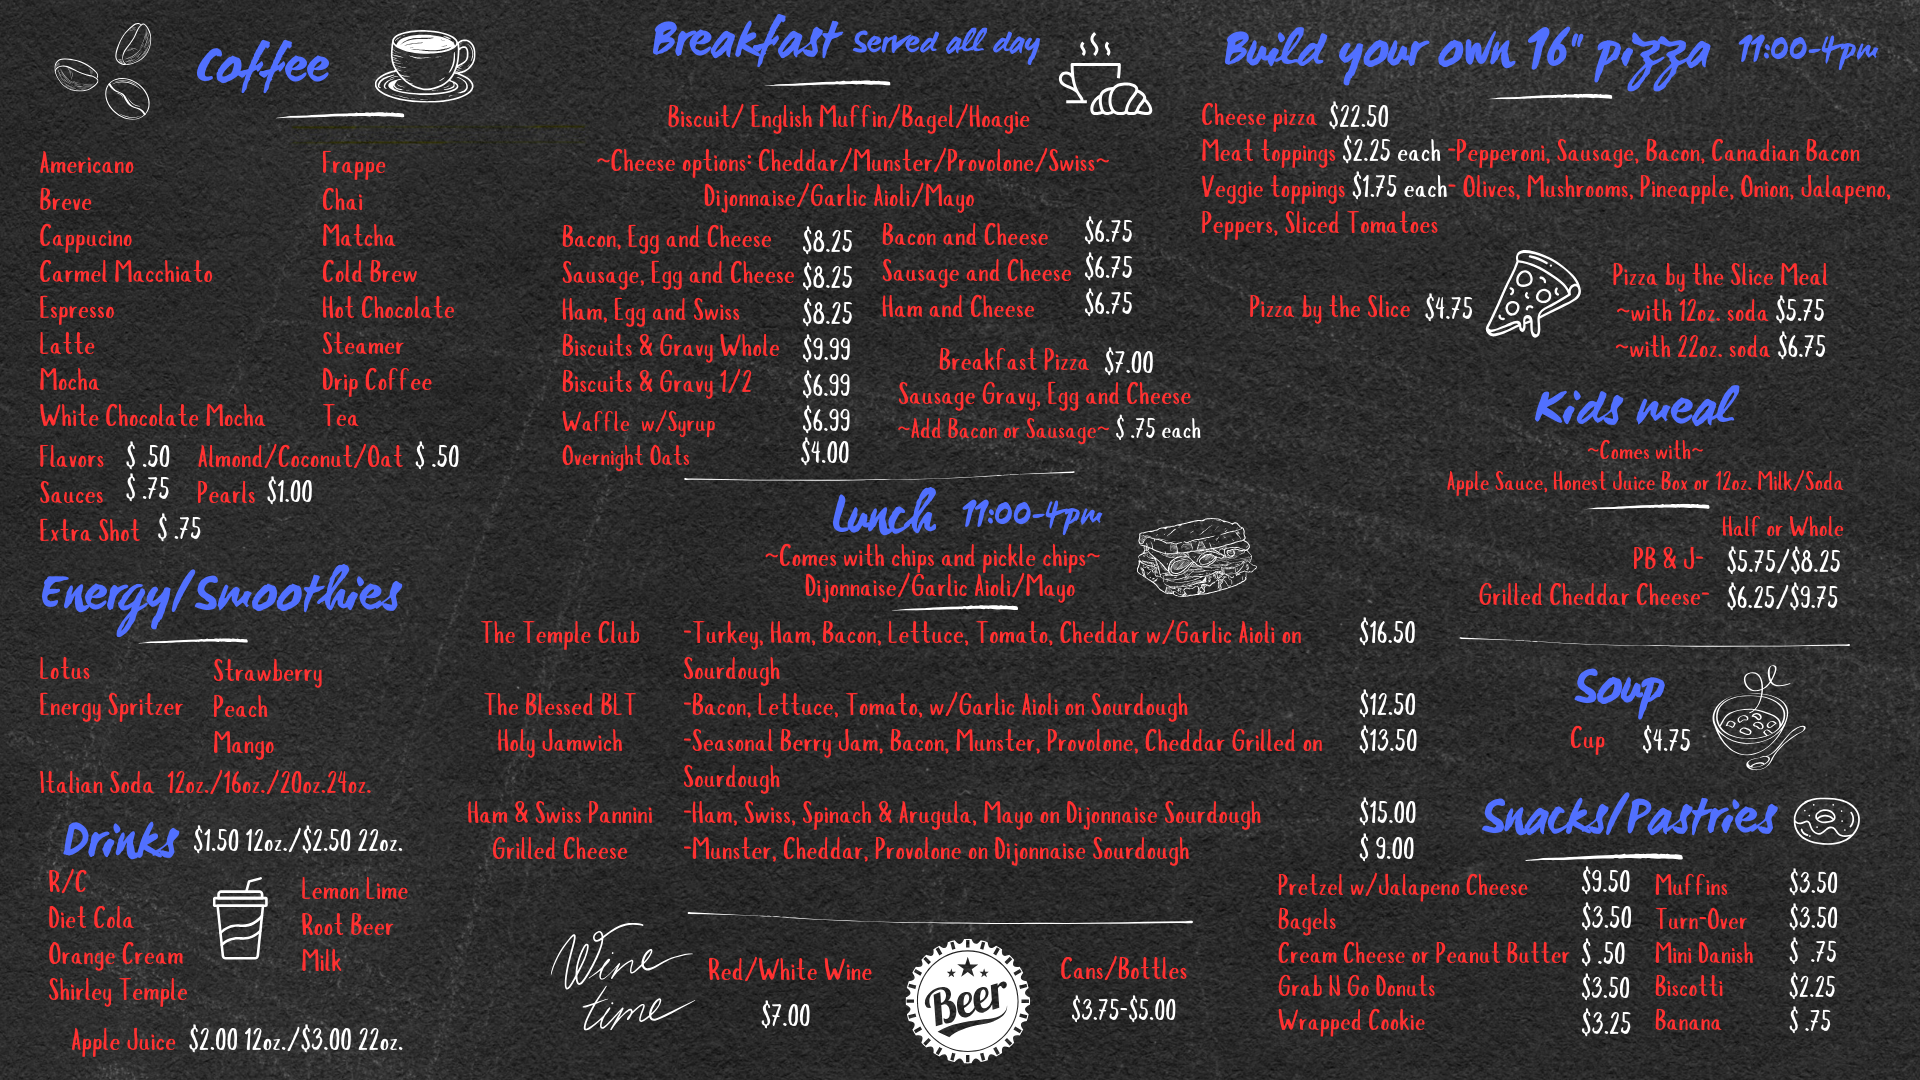 Coffee
Americano
Breve
Cappucino
Carmel Macchiato
Espresso
Latte
Mocha
White Chocolate Mocha
Frappe
Chai
Matcha
Cold Brew
Hot Chocolate
Steamer
Drip Coffee
Tea
Flavors $ .50 Almond/Coconut/Oat $ .50
Sauces $ .75 Pearls $1.00
Extra Shot $ .75
Energy/Smoothies
Lotus
Energy Spritzer
Strawberry
Peach
Mango
Italian Soda 12oz./16oz./20oz.24oz.
Drinks $1.50 12oz./$2.50 22oz.
R/C
Diet Cola
Orange Cream
Shirley Temple
Lemon Lime
Root Beer
Milk
Apple Juice $2.00 12oz./$3.00 22oz.
Breakfast Served all day
Biscuit/ English Muffin/Bagel/Hoagie
~Cheese options: Cheddar/Munster/Provolone/Swiss~
Dijonnaise/Garlic Aioli/Mayo
Bacon, Egg and Cheese $8.25
Sausage, Egg and Cheese $8.25
Ham, Egg and Swiss $8.25
Biscuits & Gravy Whole $9.99
Biscuits & Gravy 1/2 $6.99
Waffle w/Syrup $6.99
Overnight Oats $4.00
Bacon and Cheese $6.75
Sausage and Cheese $6.75
Ham and Cheese $6.75
Breakfast Pizza $7.00
Sausage Gravy, Egg and Cheese
~Add Bacon or Sausage~ $ .75 each
Lunch 11:00-4pm
~Comes with chips and pickle chips~
Dijonnaise/Garlic Aioli/Mayo
The Temple Club -Turkey, Ham, Bacon, Lettuce, Tomato, Cheddar w/Garlic Aioli on $16.50
Sourdough
The Blessed BLT -Bacon, Lettuce, Tomato, w/Garlic Aioli on Sourdough $12.50
Holy Jamwich -Seasonal Berry Jam, Bacon, Munster, Provolone, Cheddar Grilled on $13.50
Sourdough
Ham & Swiss Pannini -Ham, Swiss, Spinach & Arugula, Mayo on Dijonnaise Sourdough $15.00
Grilled Cheese -Munster, Cheddar, Provolone on Dijonnaise Sourdough $ 9.00
Wine
time
Red/White Wine
$7.00
Beer
Cans/Bottles
$3.75-$5.00
Build your own 16" pizza 11:00-4pm
Cheese pizza $22.50
Meat toppings $2.25 each -Pepperoni, Sausage, Bacon, Canadian Bacon
Veggie toppings $1.75 each- Olives, Mushrooms, Pineapple, Onion, Jalapeno,
Peppers, Sliced Tomatoes
Pizza by the Slice $4.75
Pizza by the Slice Meal
~with 12oz. soda $5.75
~with 22oz. soda $6.75
Kids meal
~Comes with~
Apple Sauce, Honest Juice Box or 12oz. Milk/Soda
Half or Whole
PB & J- $5.75/$8.25
Grilled Cheddar Cheese- $6.25/$9.75
Soup
Cup $4.75
Snacks/Pastries
Pretzel w/Jalapeno Cheese $9.50
Bagels $3.50
Cream Cheese or Peanut Butter $ .50
Grab N Go Donuts $3.50
Wrapped Cookie $3.25
Muffins $3.50
Turn-Over $3.50
Mini Danish $ .75
Biscotti $2.25
Banana $ .75